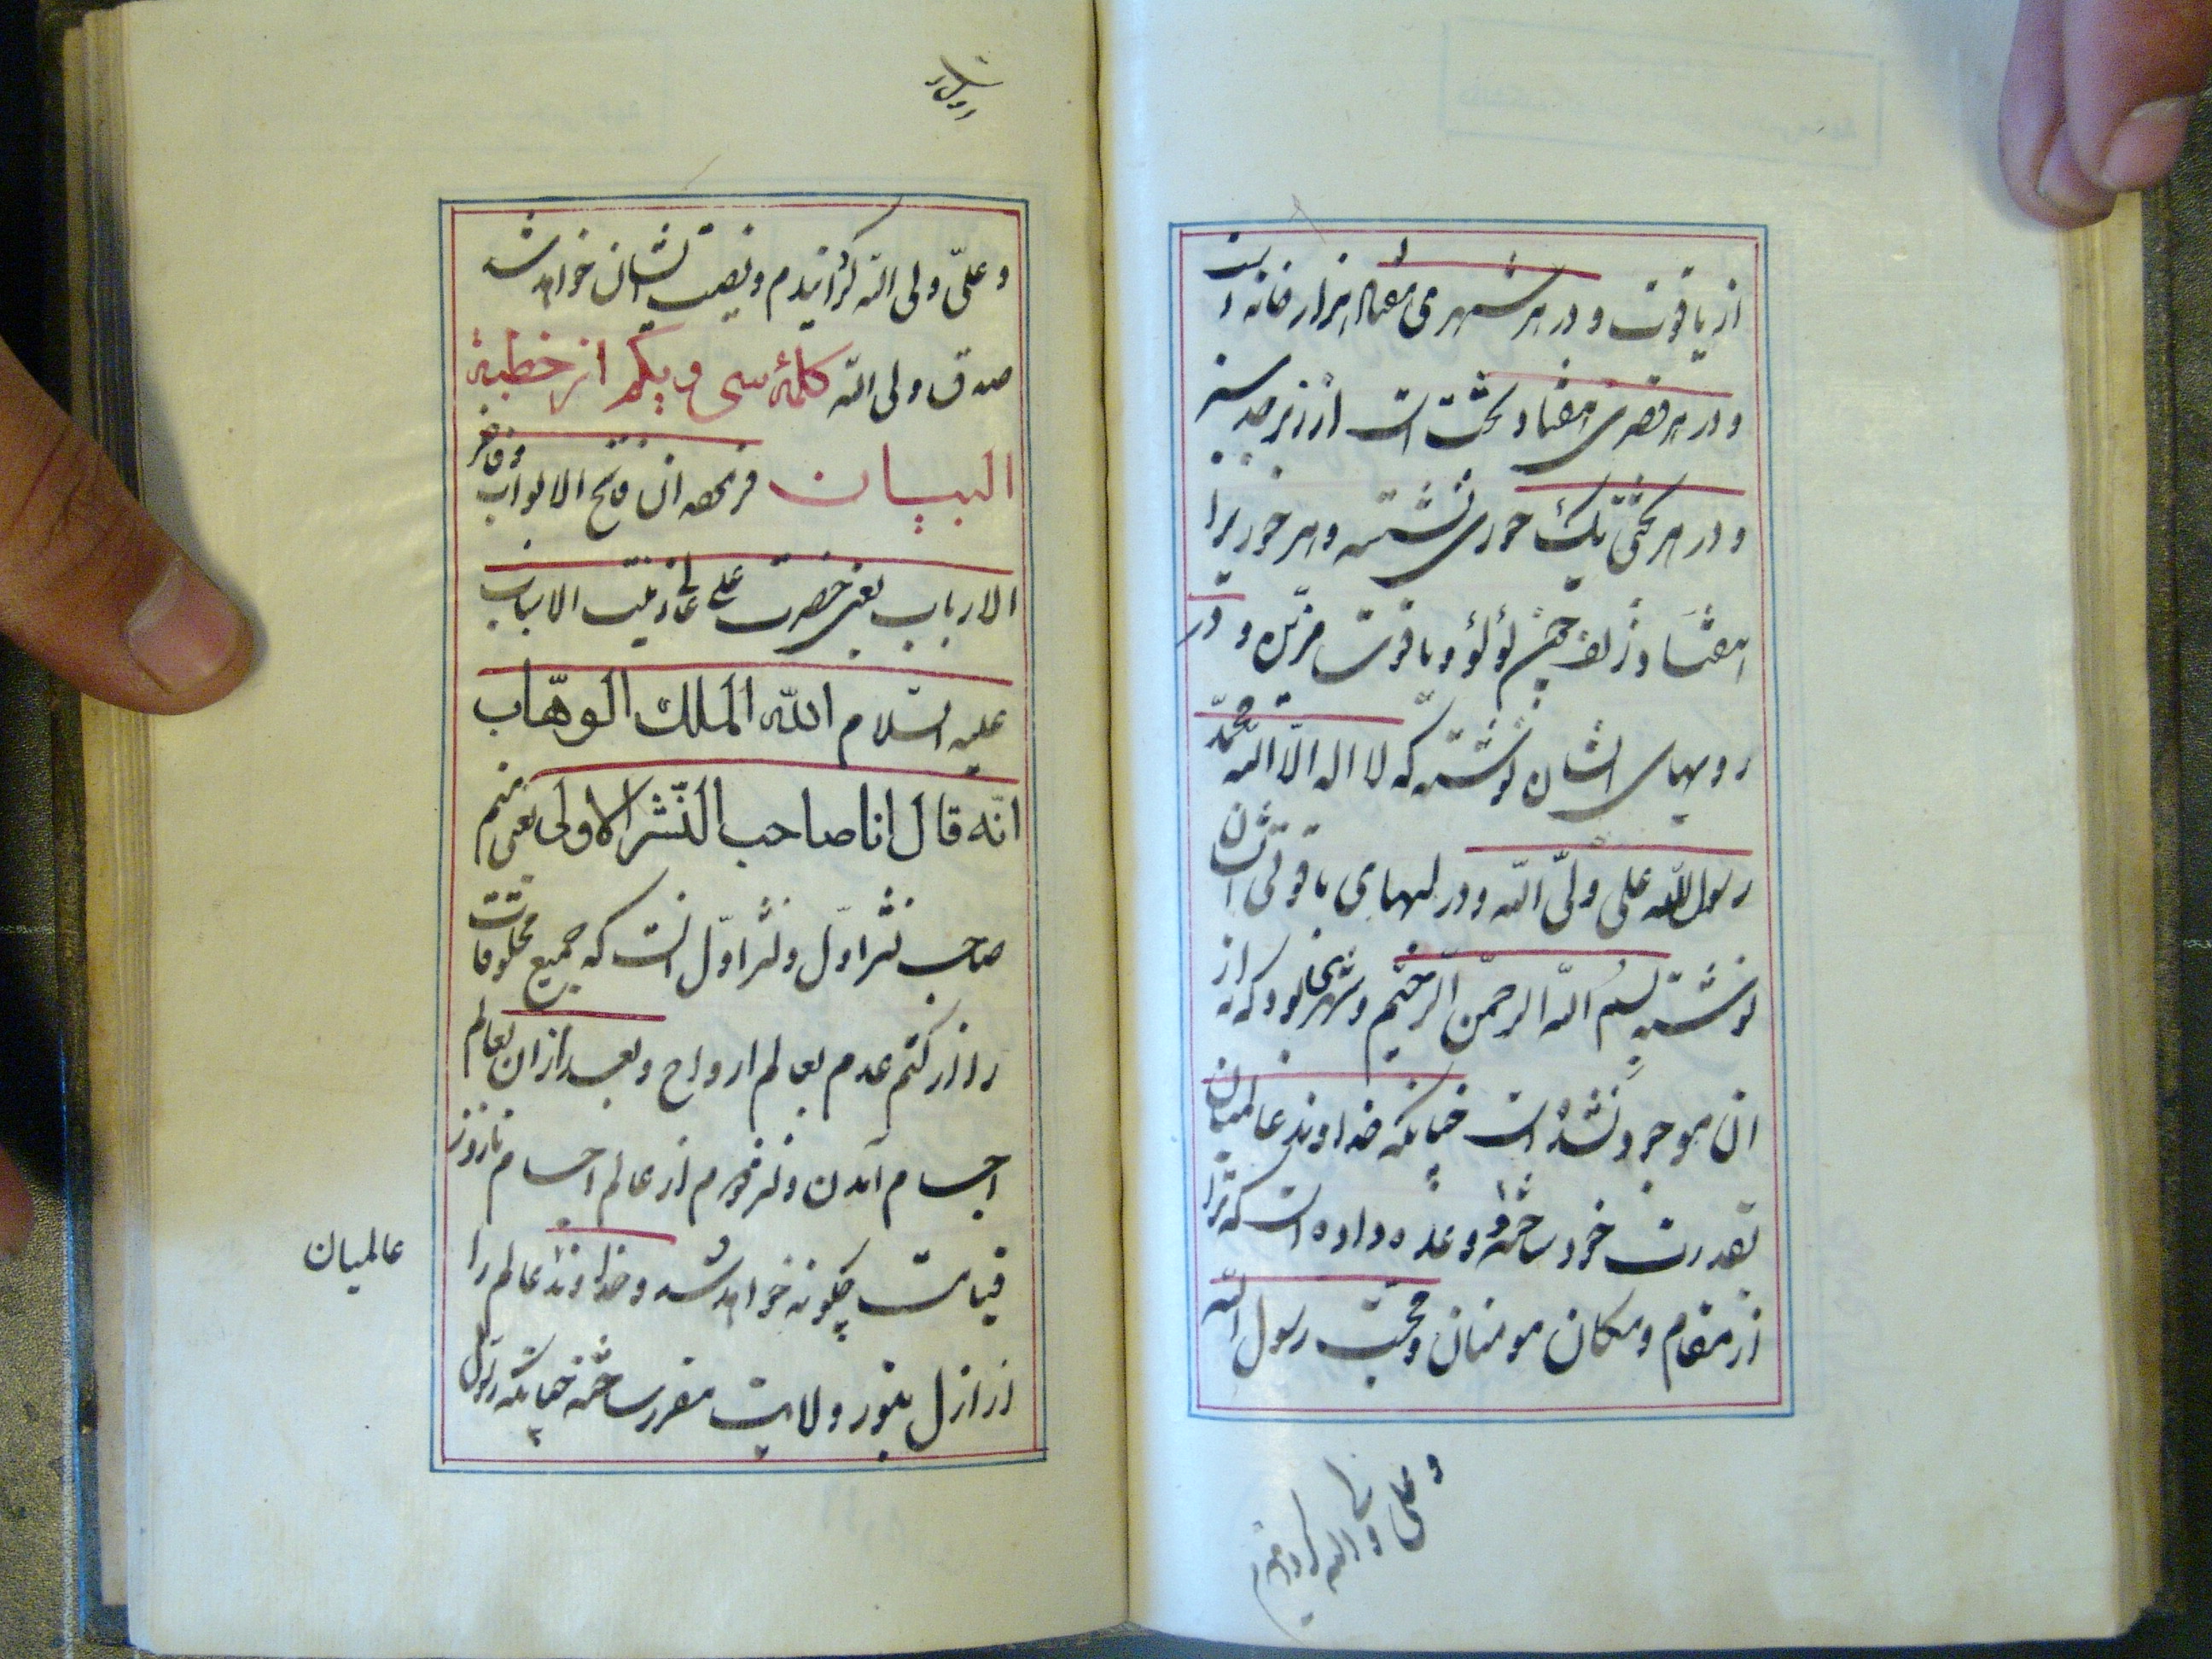 از یاقوت و در هر شهری هفتاد هزار خانه است
و در هر قصری هفتاد تخت است از زبرجد سبز
و در هر تختی یک حوری نشسته و هر حوریرا
هفتاد زلف لؤلؤ و یاقوت مزین و در
رویهای ایشان نوشته که لا اله الا الله محمّد
رسول الله علی ولیّ الله و در لبهای یاقوتی ایشان
نوشته بسم الله الرحمن الرحیم و بود که به از
ان موجود نشده است چنانکه خداوند عالمیان
بقدرت خود ساخته و وعده داده است که ترا
از مقام و مکان مومنان و محبّ رسول الله
و علی ولی الله
و علیّ ولی الله گرانیدم و نصیب ایشان خواهد شد
صدق ولی الله کلمهٔ سی و یکم از خطبة
البیان فرمود ان فاتح الابواب و
الارباب یعنی حضرت علی الانساب
علیه السلام الله الملك الوهّاب
انّه قال انا صاحب النّشر الاولی یعنی منم
صاحب نشر اوّل و نشر اوّل انست که جمیع مخلوقات
را از کتم عدم بعالم ارواح و بعد از ان بعالم
اجسام آمدن و نشر دوم از عالم اجسام تا روز
قیامت چگونه خواهد شد و خداوند عالم را
عالمیان
از ازل بنور ولایت مقرر ساخته چنانکه رسول